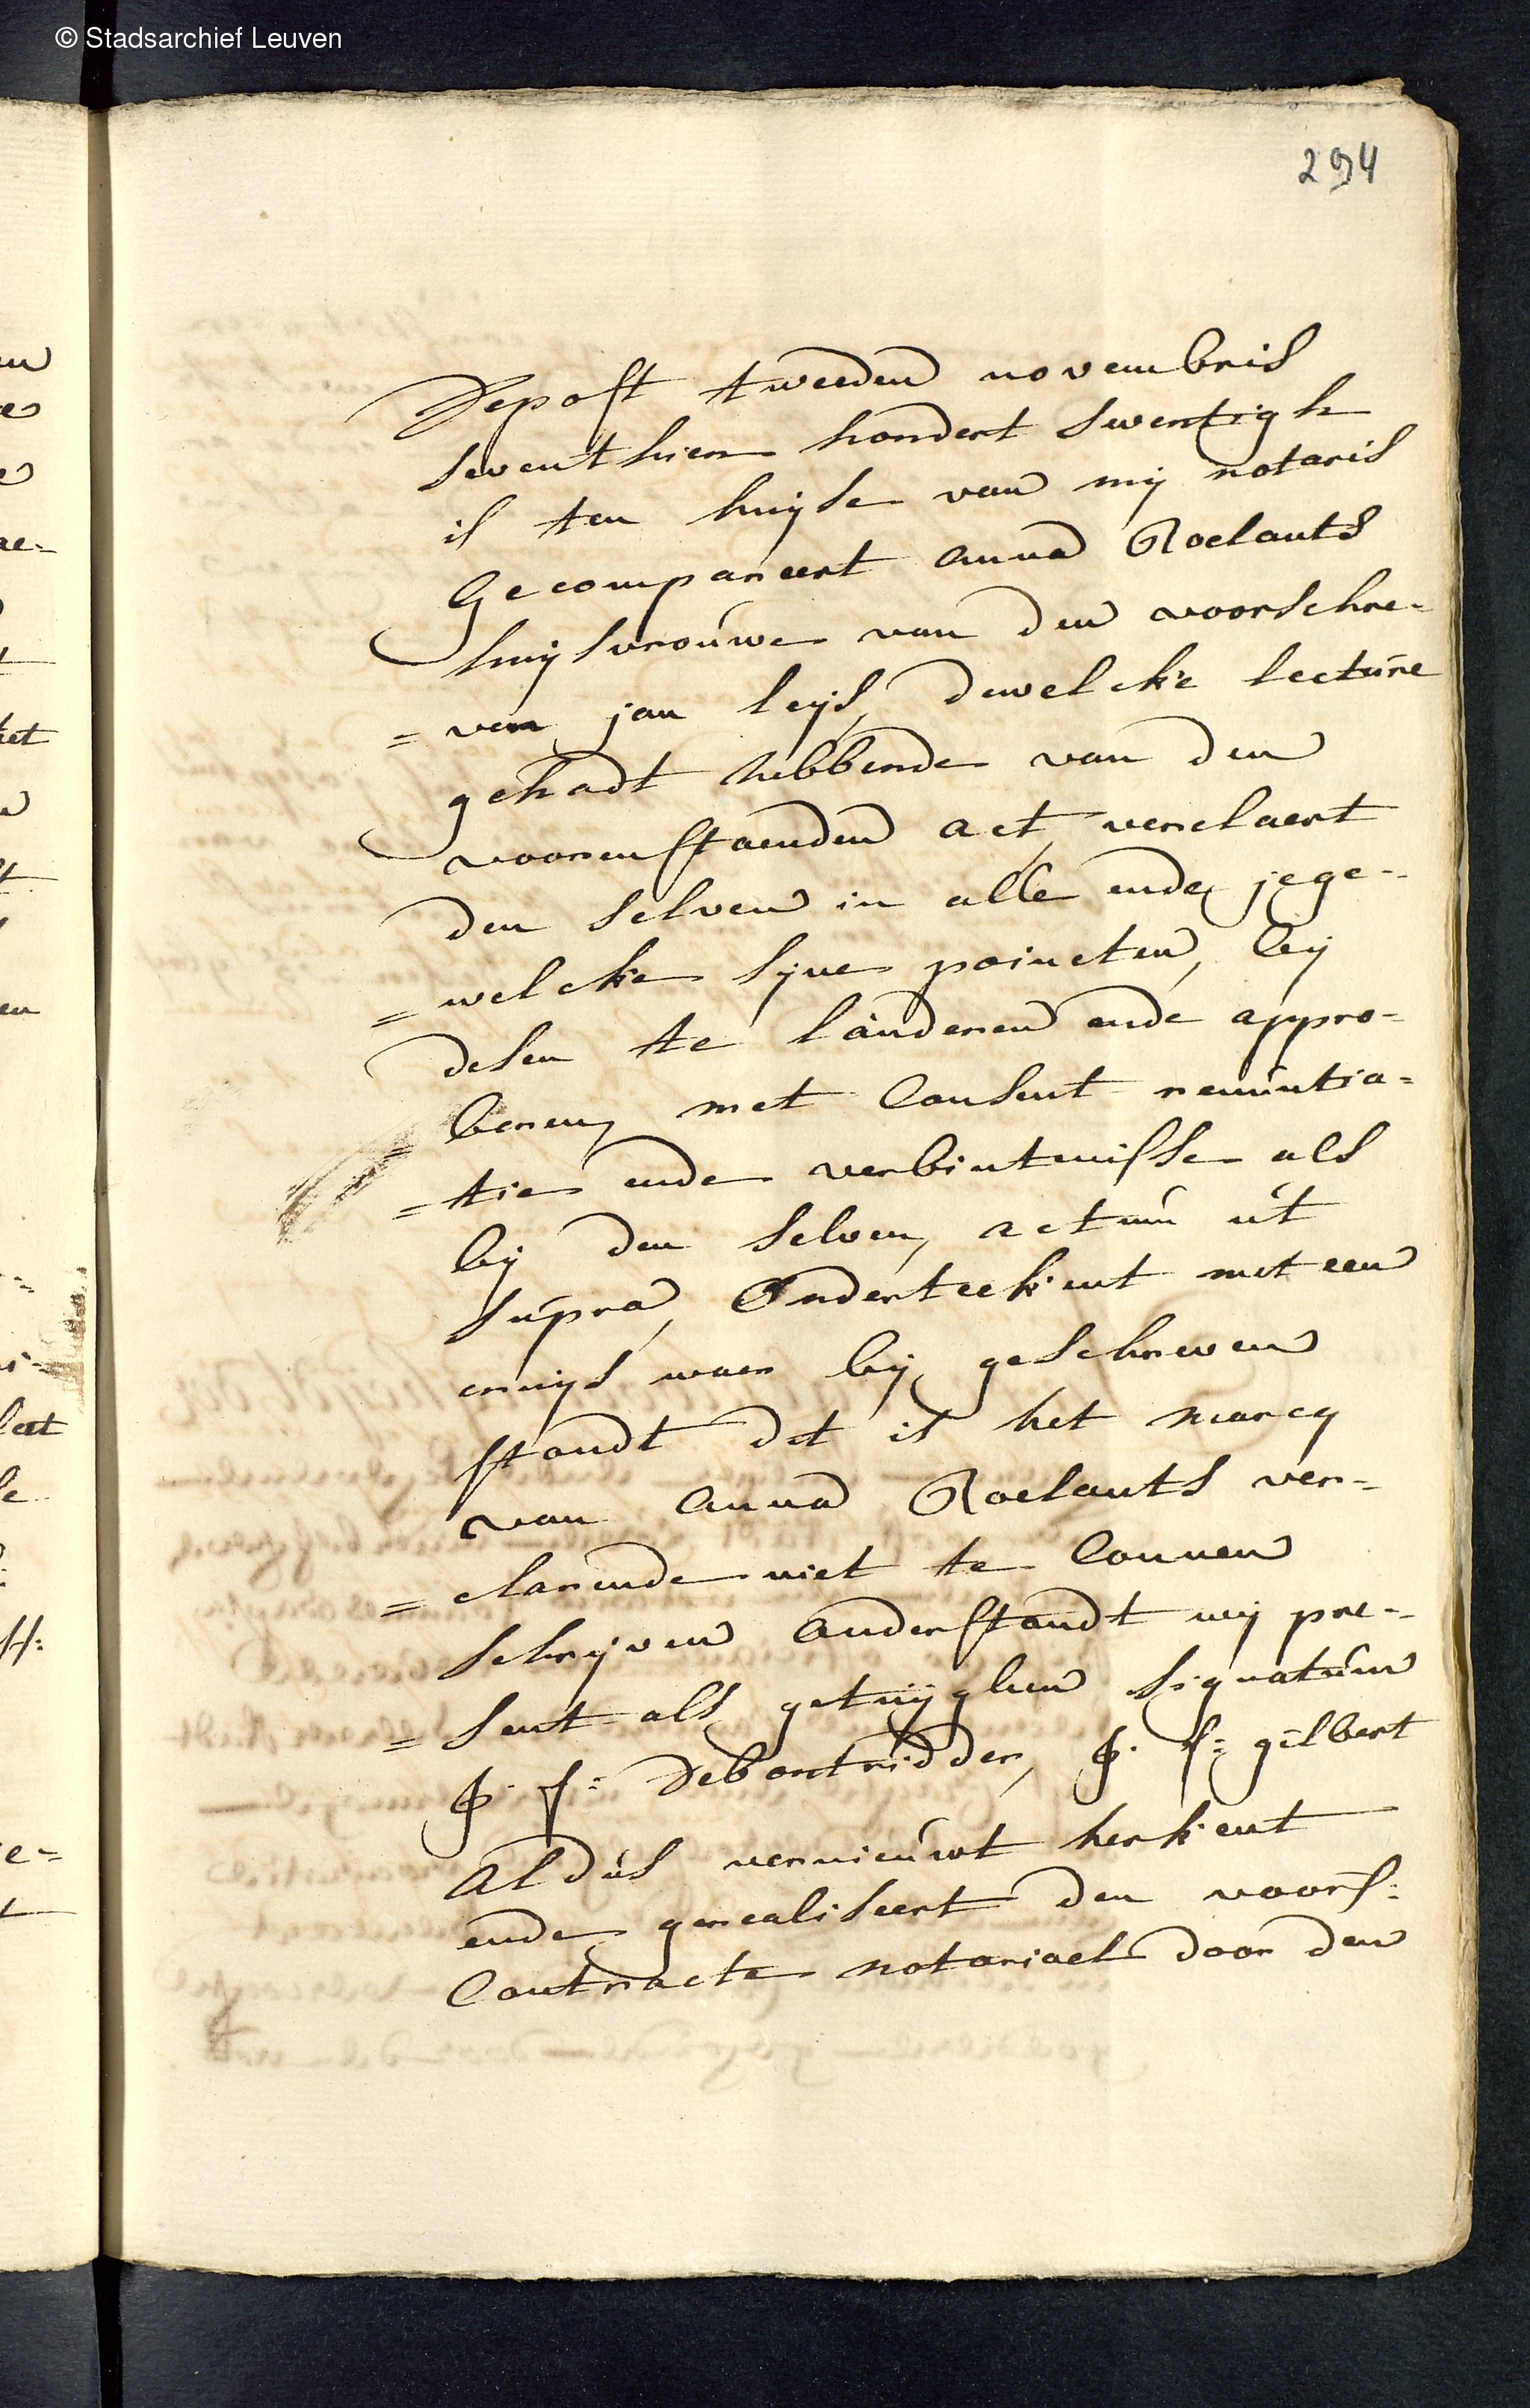 © Stadsarchief Leuven
294
Depost tweeden novembris
seventhien hondert swentigh
is ten huijse van mij notaris
Gecompareert Anna Roelants
huijsvrouwe van den voorschre-
=ven jan leijs, dewelcke lecture
gehadt hebbende van den
voorenstaenden act, verclaert
den selven in alle ende jege-
=welcke sijne poincten, bij
desen te lauderen ende appro-
=beren, met Consent renuntia=
=tie ende verbintenisse als
bij den selven, actum ut
supra, Onderteekent met een
cruijs waer bij geschreven
stondt dit is het marcq
van Anna Roelants ver-
=clarende niet te Connen
schrijven Onderstondt mij pre-
=sent als getuijghen signatum
Debontridder, gilbert
Aldus vernieuwt herkent
ende gerealiseert den voors:
Contracte notariael door den